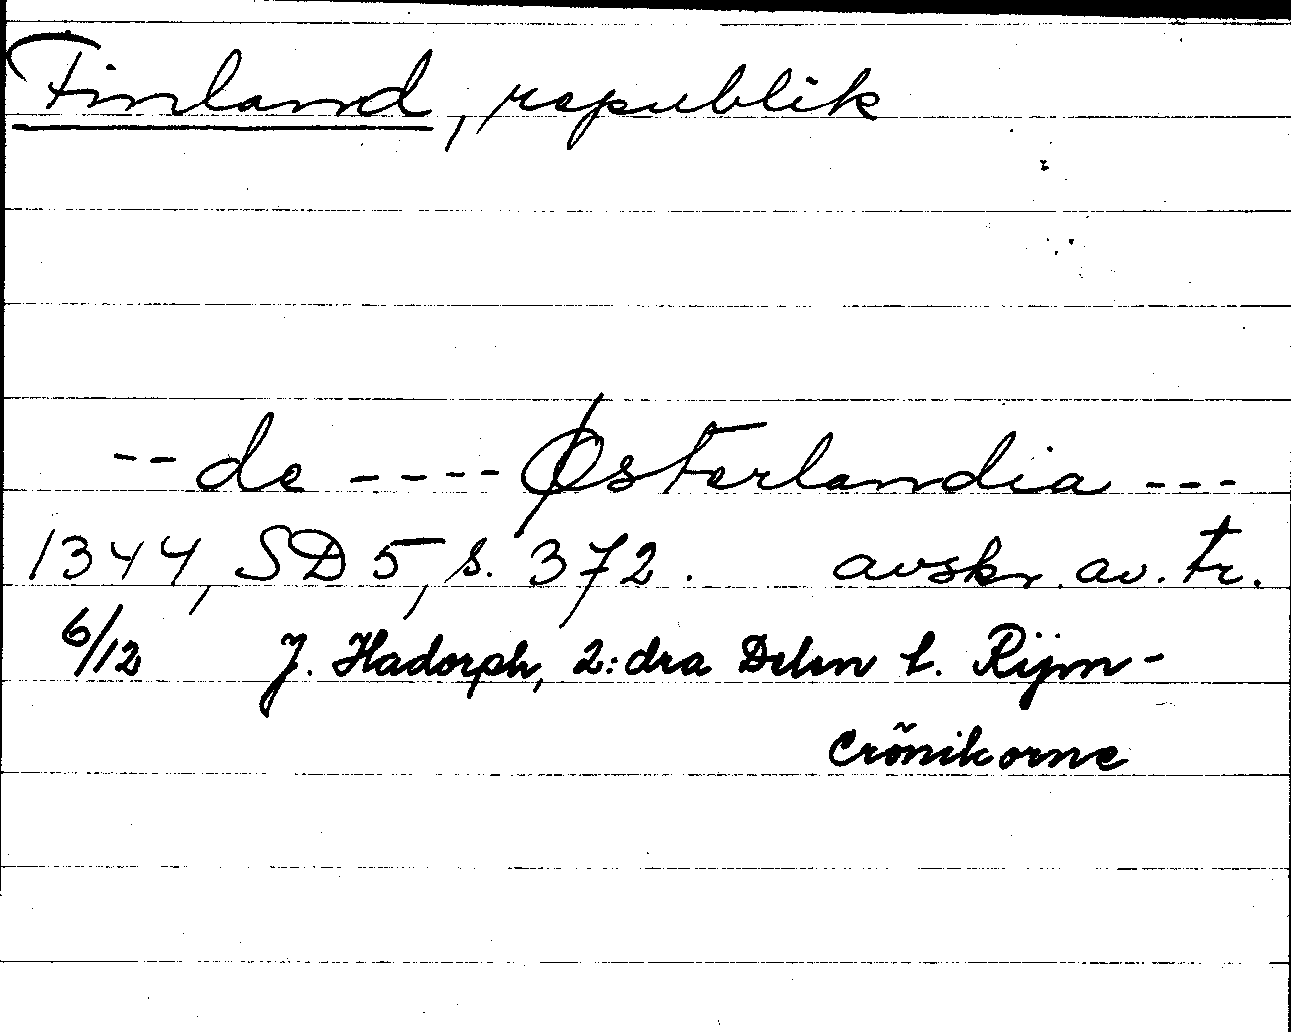 Finland, republik
-- de ---- Østerlandia ---
1344, SD 5, s. 372. avskr. av. tr.
6/12 J. Hadorph, 2:dra Delen t. Rijm-
Crõnikorne